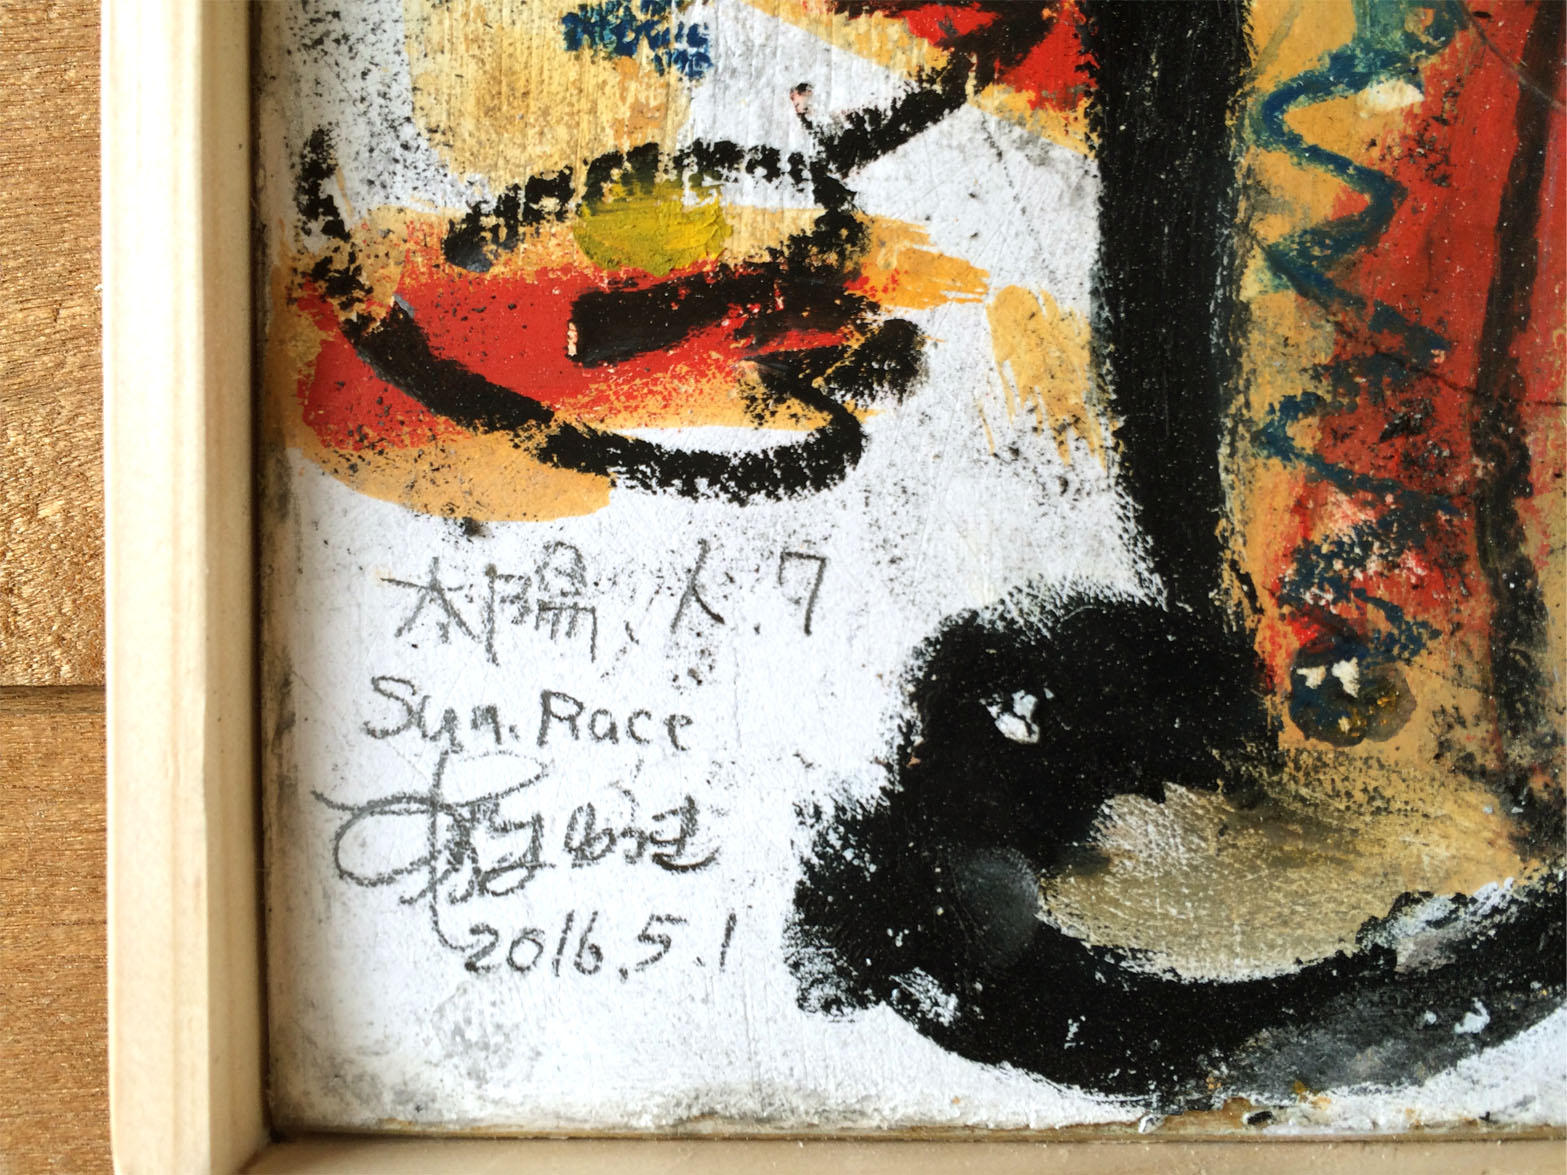 太陽.人.7
Sun. Race
2016.5.1